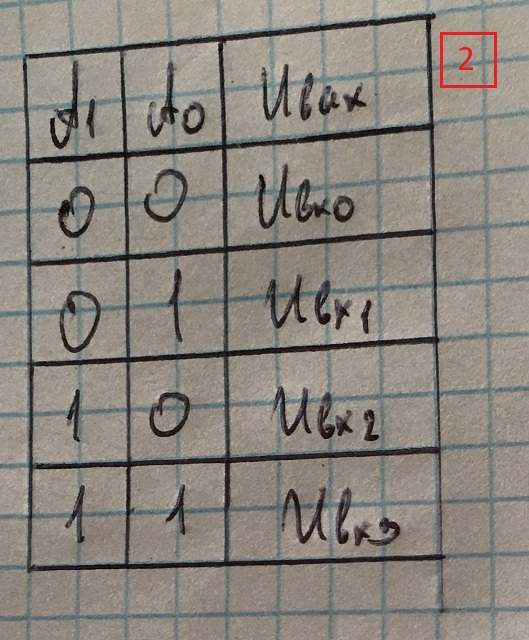 A1 A0 Uвых
2
0 0 Uвх0
0 1 Uвх1
1 0 Uвх2
1 1 Uвх3